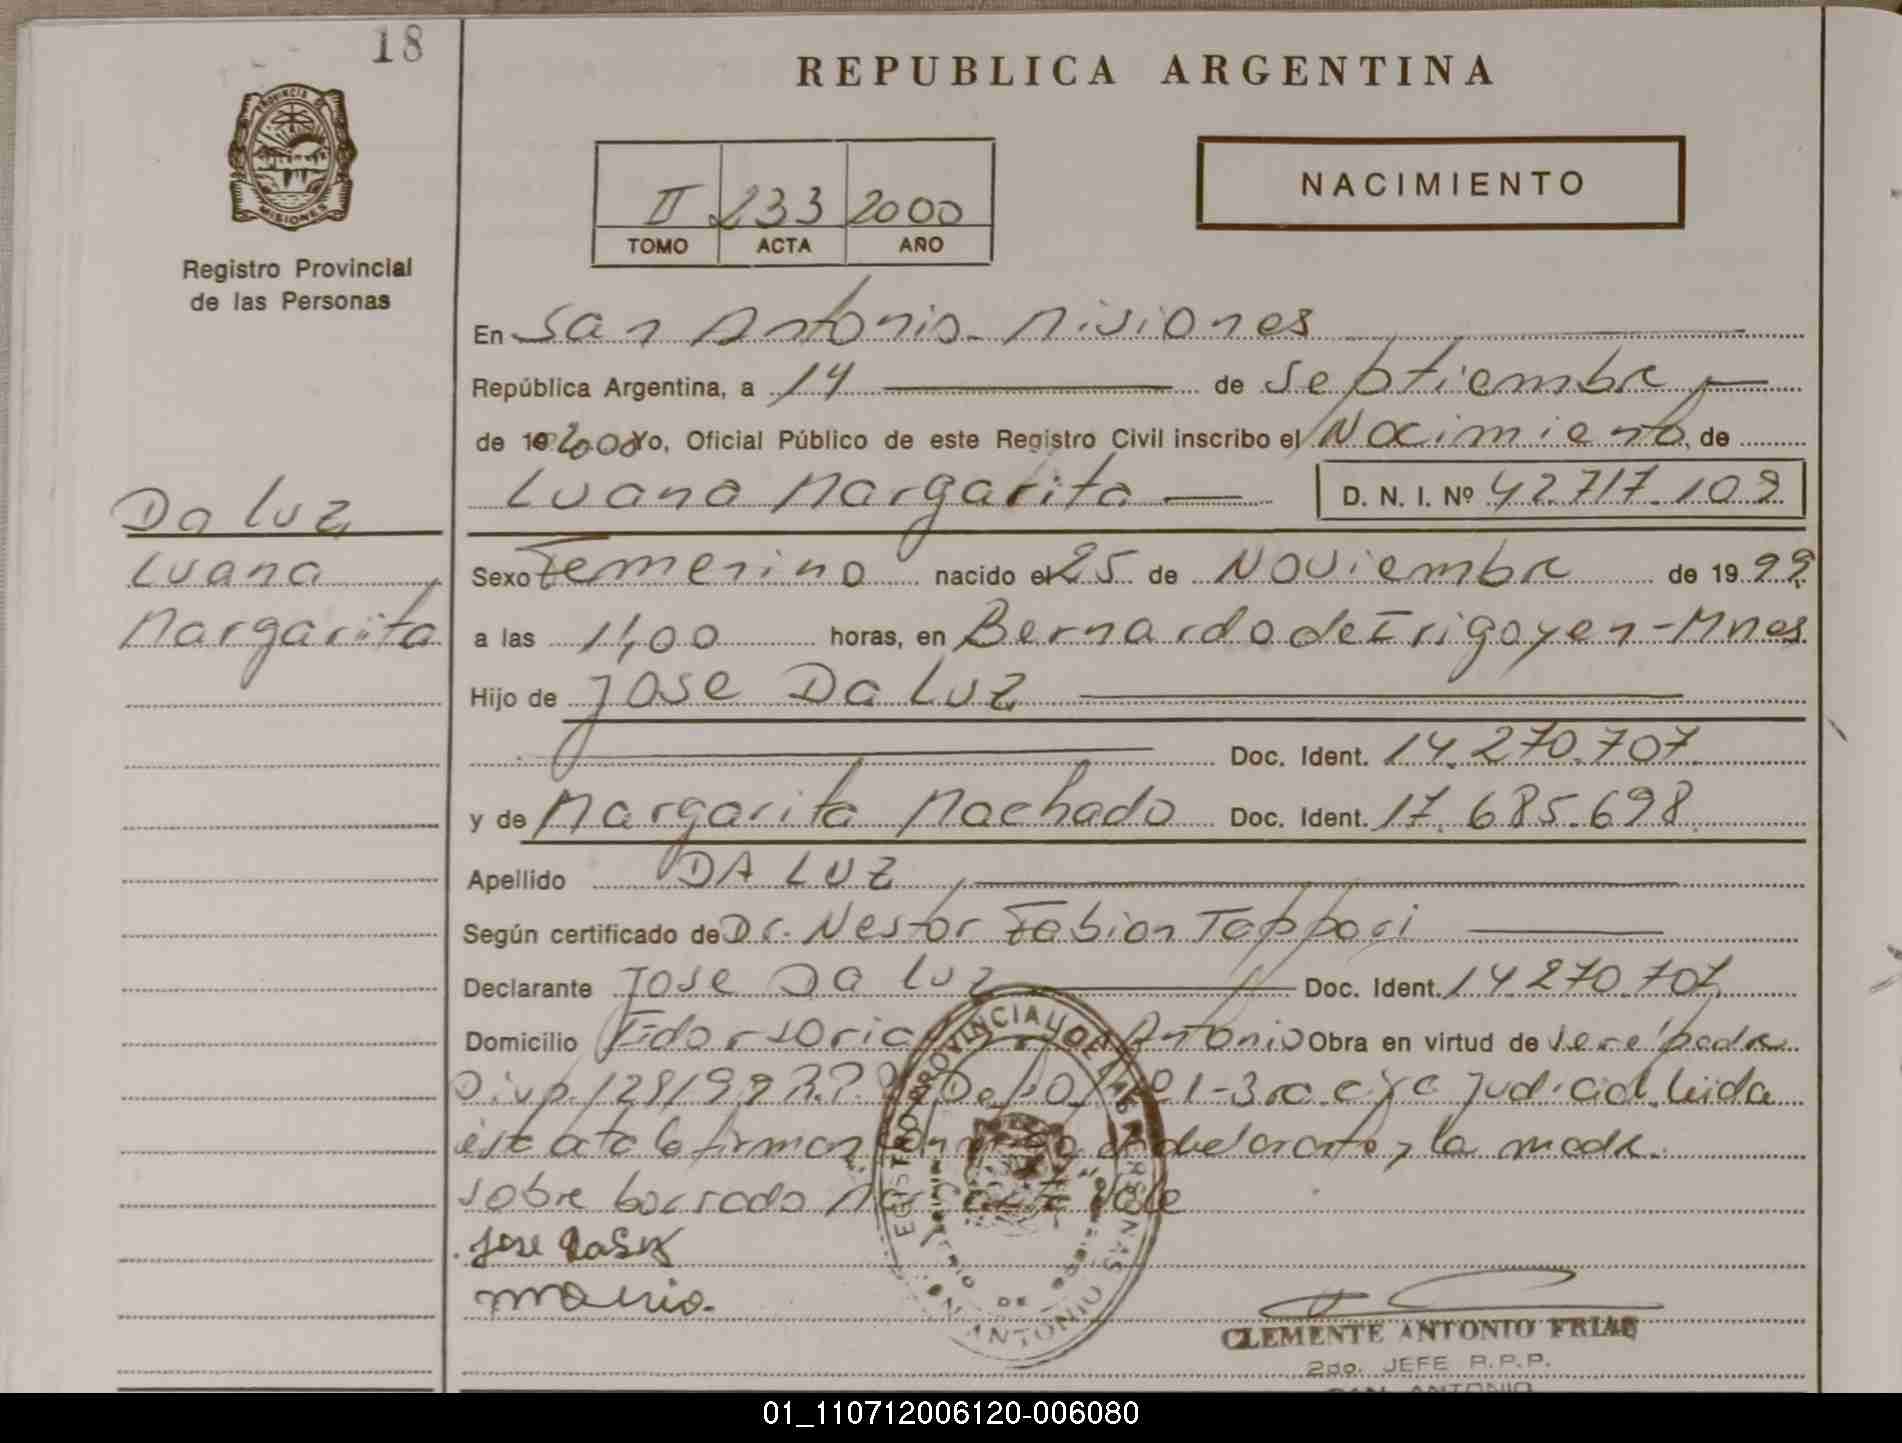 18
REPUBLICA ARGENTINA
PROVINCIA DE
MISIONES
Registro Provincial
de las Personas
II 233 2000
TOMO ACTA AÑO
NACIMIENTO
En San Antonio - Misiones
República Argentina, a 14 de Septiembre
de 19 2000 Yo, Oficial Público de este Registro Civil inscribo el Nacimiento, de
Luana Margarita D. N. I. Nº 42.717.109
Da Luz
Luana
Margarita
Sexo Femenino nacido el 25 de Noviembre de 19 99
a las 11,00 horas, en Bernardo de Irigoyen - Mnes
Hijo de Jose Da Luz
Doc. Ident. 14.270.707
y de Margarita Machado Doc. Ident. 17.685.698
Apellido DA LUZ
Según certificado de Dr. Nestor Fabian Tappari
Declarante Jose Da Luz Doc. Ident. 14.270.707
Domicilio Antonio Obra en virtud de ser el padre
Disp. 128/99 R.P.P. 3ra circ Judicial. Leida
este acta la firman declarante y la madre.
sobre borrado vale
REGISTRO PROVINCIAL DE LAS PERSONAS
SAN ANTONIO
CLEMENTE ANTONIO FRIAS
2do. JEFE R.P.P.
SAN ANTONIO
01_110712006120-006080